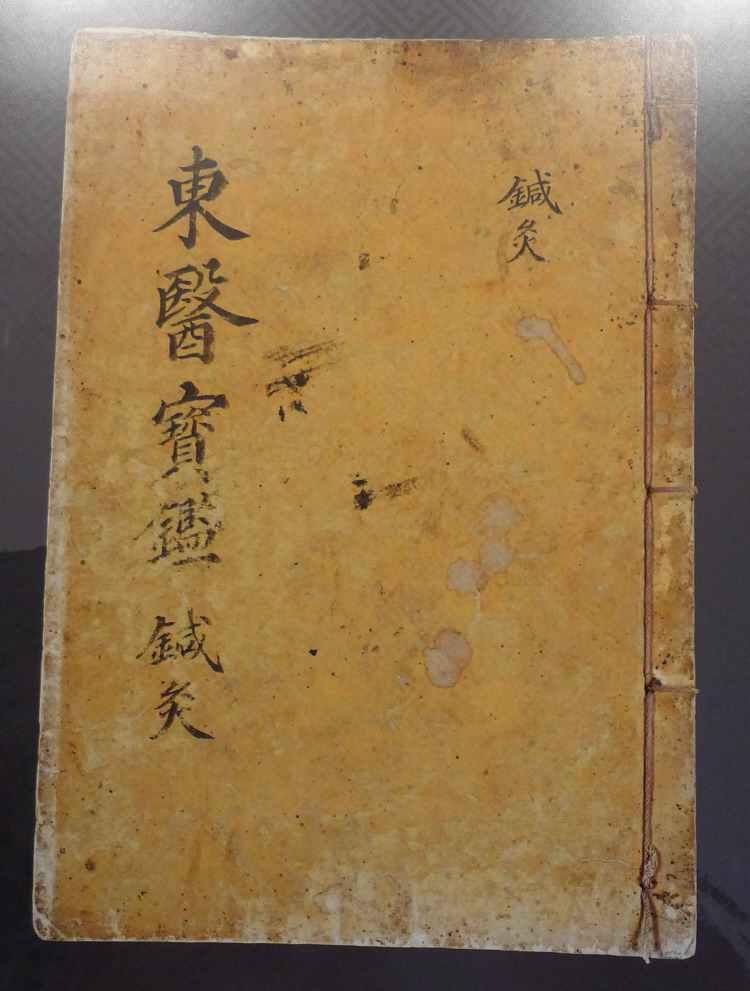 鍼灸
東醫寶鑑 鍼灸